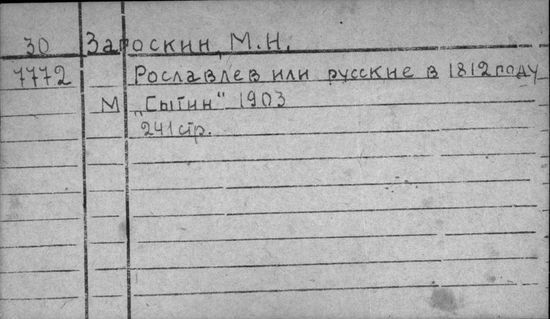 30 Загоскин, М.Н.
7772 Рославлев или русские в 1812 году
М „Сытин“ 1903
241 стр.